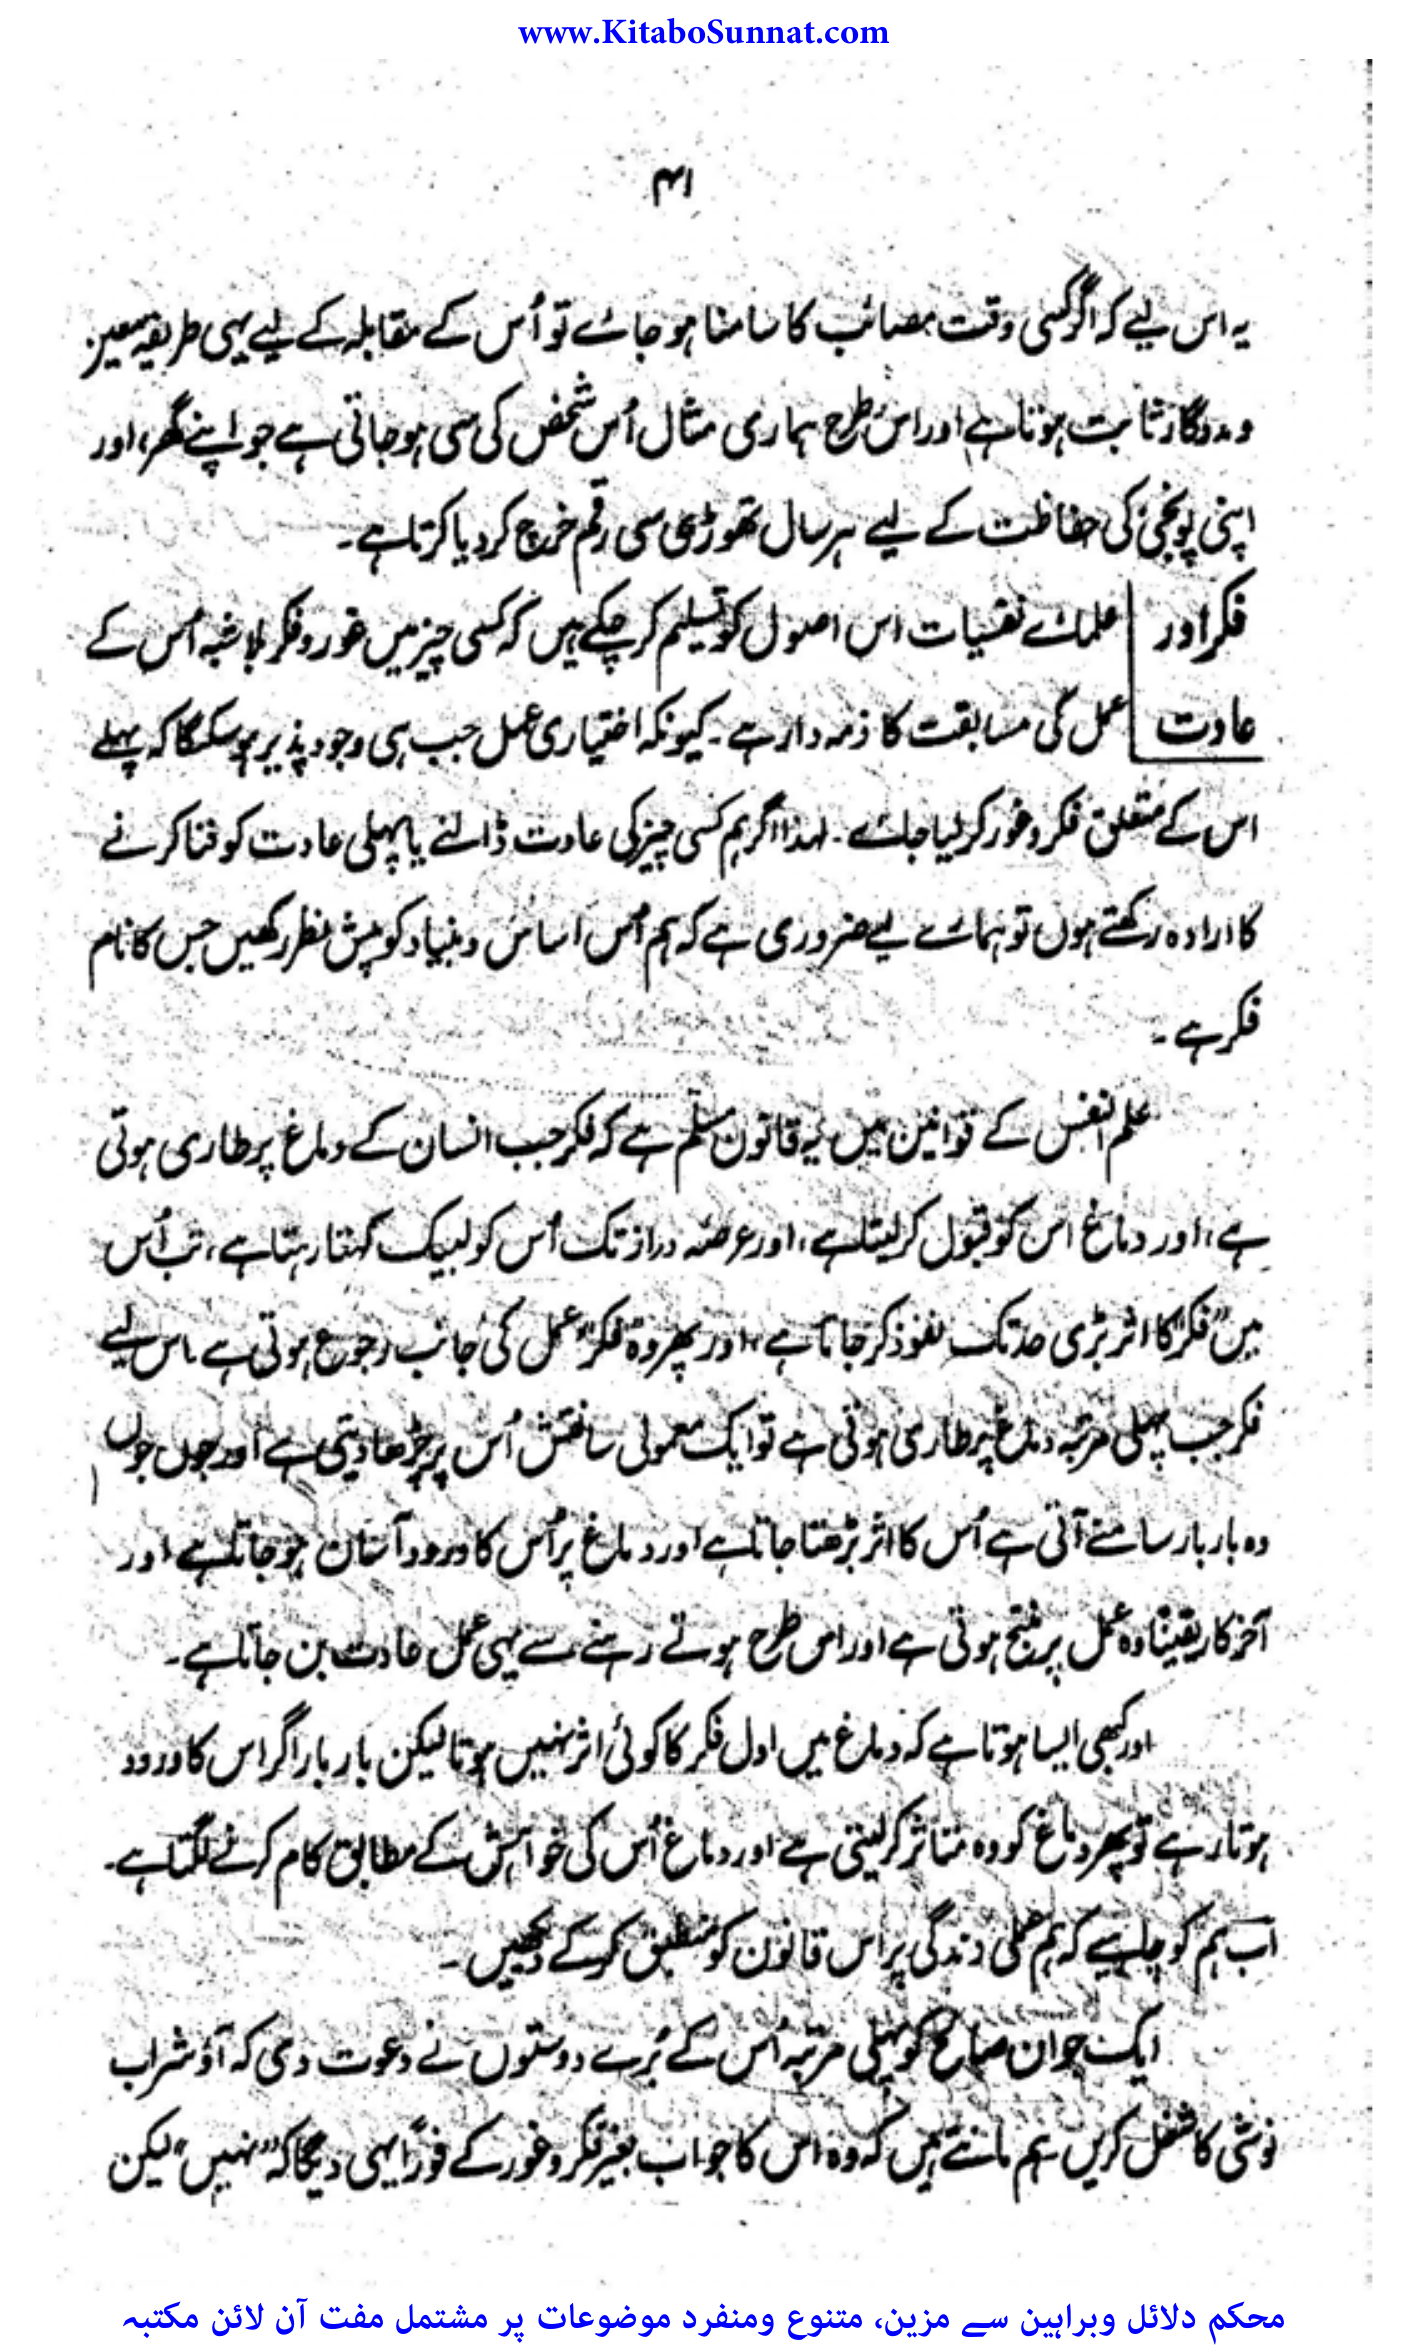 www.KitaboSunnat.com
۴۱
یہ اس لیے کہ اگر کسی وقت مصائب کا سامنا ہو جائے تو اُس کے مقابلہ کے لیے یہی طریقہ معین
و مددگار ثابت ہوتا ہے اور اس طرح ہماری مثال اُس شخص کی سی ہو جاتی ہے جو اپنے گھر، اور
اپنی پونجی کی حفاظت کے لیے ہر سال تھوڑی سی رقم خرچ کر دیا کرتا ہے۔
فکر اور علمائے نفسیات اس اصول کو تسلیم کر چکے ہیں کہ کسی چیز میں غور و فکر بلا شبہ اُس کے
عادت عمل کی مسابقت کا ذمہ دار ہے۔ کیونکہ اختیاری عمل جب ہی وجود پذیر ہو سکیگا کہ پہلے
اس کے متعلق فکر و غور کر لیا جائے۔ لہذا اگر ہم کسی چیز کی عادت ڈالنے یا پہلی عادت کو فنا کرنے
کا ارادہ رکھتے ہوں تو ہمارے لیے ضروری ہے کہ ہم اُس اساس و بنیاد کو پیش نظر رکھیں جس کا نام
فکر ہے۔
علم النفس کے قوانین میں یہ قانون مسلّم ہے کہ فکر جب انسان کے دماغ پر طاری ہوتی
ہے، اور دماغ اس کو قبول کر لیتا ہے، اور عرصہ دراز تک اُس کو لبیک کہتا رہتا ہے، تب اُس
میں "فکر" کا اثر بڑی حد تک نفوذ کر جاتا ہے، اور پھر وہ "فکر" عمل کی جانب رجوع ہوتی ہے۔ اس لیے
فکر جب پہلی مرتبہ دماغ پر طاری ہوتی ہے تو ایک معمولی سا نقش اُس پر چڑھا دیتی ہے اور جوں جوں
وہ بار بار سامنے آتی ہے اُس کا اثر بڑھتا جاتا ہے اور دماغ پر اُس کا ورود آسان ہو جاتا ہے اور
آخر کار یقیناً وہ عمل پر منتج ہوتی ہے اور اس طرح ہوتے رہنے سے یہی عمل عادت بن جاتا ہے۔
اور کبھی ایسا ہوتا ہے کہ دماغ میں اول فکر کا کوئی اثر نہیں ہوتا لیکن بار بار اگر اس کا ورود
ہوتا رہے تو پھر دماغ کو وہ متاثر کر لیتی ہے اور دماغ اُس کی خواہش کے مطابق کام کرنے لگتا ہے۔
اب ہم کو چاہیے کہ ہم عملی زندگی پر اس قانون کو منطبق کر کے دیکھیں۔
ایک جوان صالح کو پہلی مرتبہ اُس کے بُرے دوستوں نے دعوت دی کہ آؤ شراب
نوشی کا شغل کریں ہم مانتے ہیں کہ وہ اس کا جواب بغیر فکر و غور کے فوراً یہی دیگا کہ "نہیں" لیکن
محکم دلائل وبراہین سے مزین، متنوع ومنفرد موضوعات پر مشتمل مفت آن لائن مکتبہ